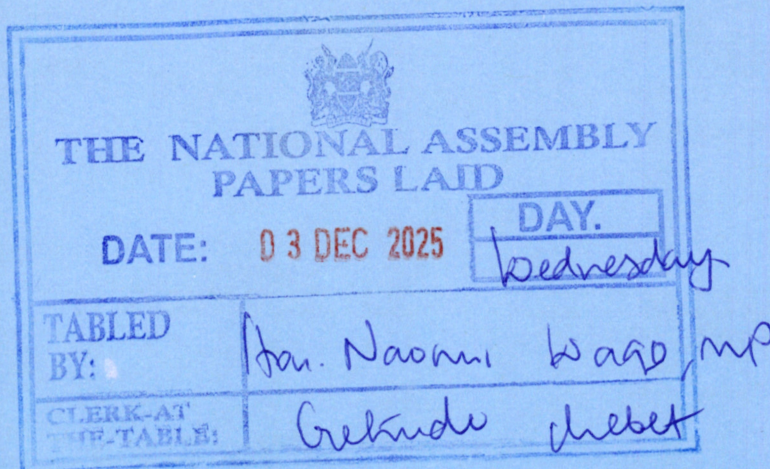 THE NATIONAL ASSEMBLY
PAPERS LAID
DATE: 03 DEC 2025
DAY.
Wednesday
TABLED BY: Hon. Naomi Waqo, MP
CLERK-AT THE-TABLE: Chebet